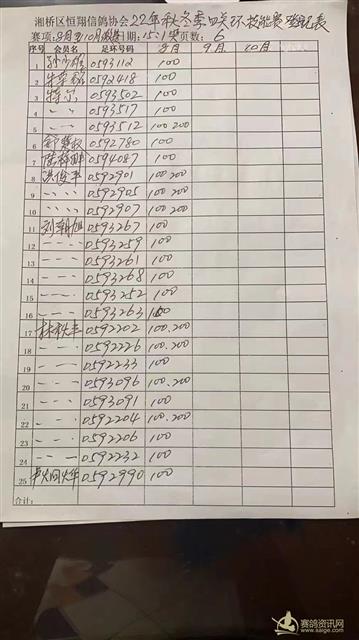 湘桥区恒翔信鸽协会22年秋冬季四关环技能赛登记表
赛项:9月至10月 期:15:1奖 页数:6
序号 会员名 足环号码 8月 9月 10月
1 0593112 100
2 0592418 100
3 0593502 100
4 〃 〃 0593517 100
5 〃 〃 0593512 100.200
6 0592780 100
7 0594087 100
8 洪俊丰 0592901 100.200
9 〃 〃 〃 0592905 100.200
10 〃 〃 〃 0592907 100.200
11 刘朝旭 0593267 100
12 〃 〃 〃 0593259 100
13 〃 〃 〃 0593261 100
14 〃 〃 〃 0593268 100
15 〃 〃 〃 0593252 100
16 〃 〃 〃 0593263 100
17 0592202 100.200
18 〃 〃 〃 0592226 100.200
19 〃 〃 〃 0592233 100
20 〃 〃 〃 0593096 100.200
21 〃 〃 〃 0593091 100
22 〃 〃 〃 0592204 100.200
23 〃 〃 〃 0592206 100
24 〃 〃 〃 0592232 100
25 0592990 100
合计:
赛鸽资讯网
www.saige.com